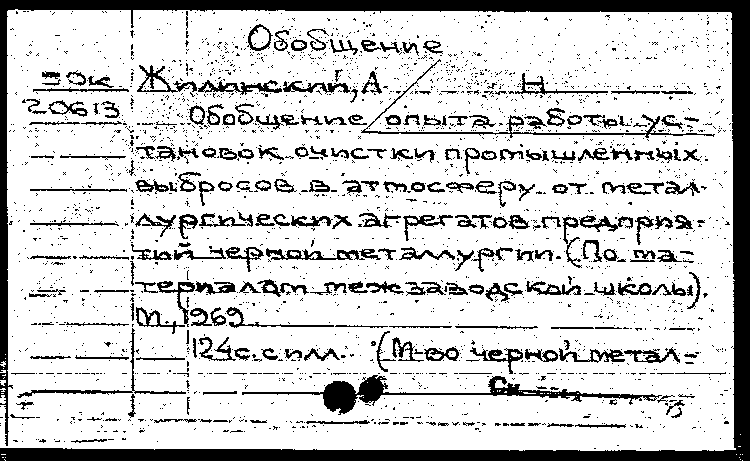 Обобщение
Жилинский, А Н
20613
Обобщение опыта работы ус-
тановок очистки промышленных
выбросов в атмосферу от метал-
лургических агрегатов предприя-
тий черной металлургии. (По ма-
териалам межзаводской школы).
М., 1969.
124с. с илл. (М-во черной метал-
См.